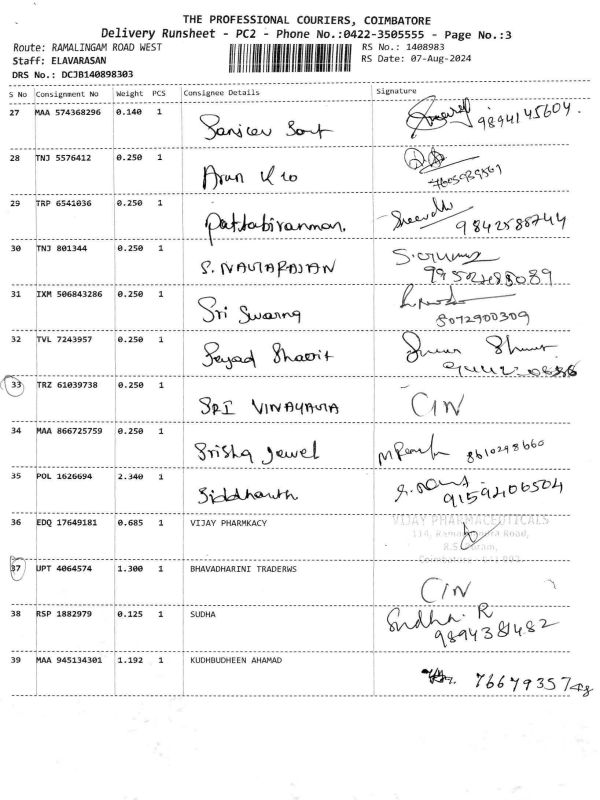 THE PROFESSIONAL COURIERS, COIMBATORE
Delivery Runsheet - PC2 - Phone No.:0422-3505555 - Page No.:3
Route: RAMALINGAM ROAD WEST
RS No.: 1408983
Staff: ELAVARASAN
RS Date: 07-Aug-2024
DRS No.: DCJB140898303
S No Consignment No Weight PCS Consignee Details Signature
27 MAA 574368296 0.140 1 Sanjeev 9894145604.
28 TNJ 5576412 0.250 1 Arun
29 TRP 6541036 0.250 1 Pattabiranman. 9842588744
30 TNJ 801344 0.250 1 S. NAVTARAJAN
31 IXM 506843286 0.250 1 Sri Swarna 8072900309
32 TVL 7243957 0.250 1
33 TRZ 61039738 0.250 1 SRI VINAYAVIA C/N
34 MAA 866725759 0.250 1 Srisha Jewel 8610298660
35 POL 1626694 2.340 1 Siddharth 9159206504
36 EDQ 17649181 0.685 1 VIJAY PHARMKACY VIJAY PHARMACEUTICALS
114, Road,
37 UPT 4064574 1.300 1 BHAVADHARINI TRADERWS C/N
38 RSP 1882979 0.125 1 SUDHA Sudha. R
39 MAA 945134301 1.192 1 KUDHBUDHEEN AHAMAD